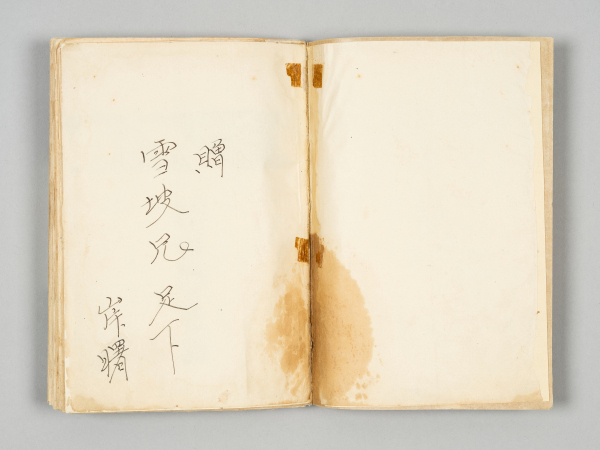 贈
雪坡兄 足下
岸曙